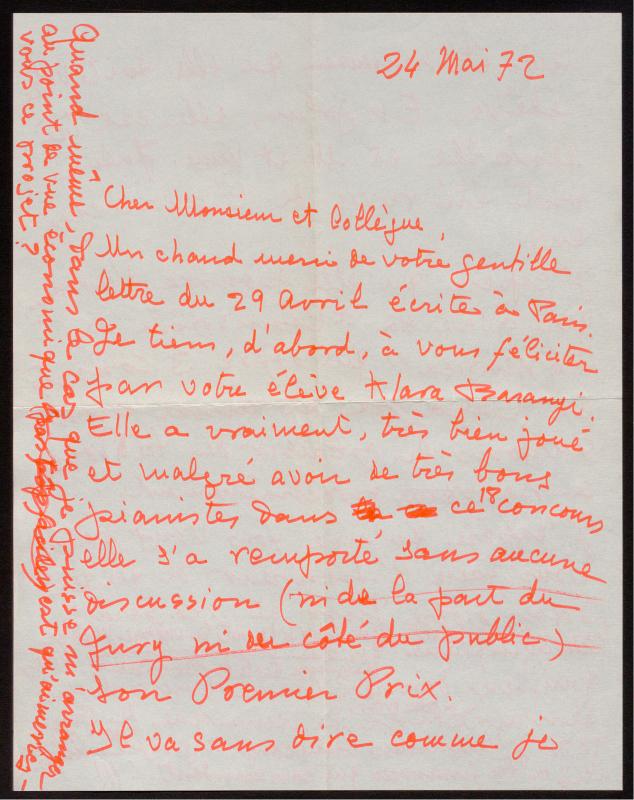 24 Mai 72
Cher Monsieur et Collègue,
Un chaud merci de votre gentille
lettre du 29 Avril écrite à Paris.
Je tiens, d'abord, à vous féliciter
par votre élève Klara Baranyi.
Elle a vraiment, très bien joué
et malgré avoir de très bons
pianistes dans ce 18 concours
elle s'a remporté sans aucune
discussion (ni de la part du
Jury ni du côté du public)
son Premier Prix.
Il va sans dire comme je
Quand même, dans le cas que je puisse m'arranger
au point de vue économique est qu'aimeriez-
vous ce projet?